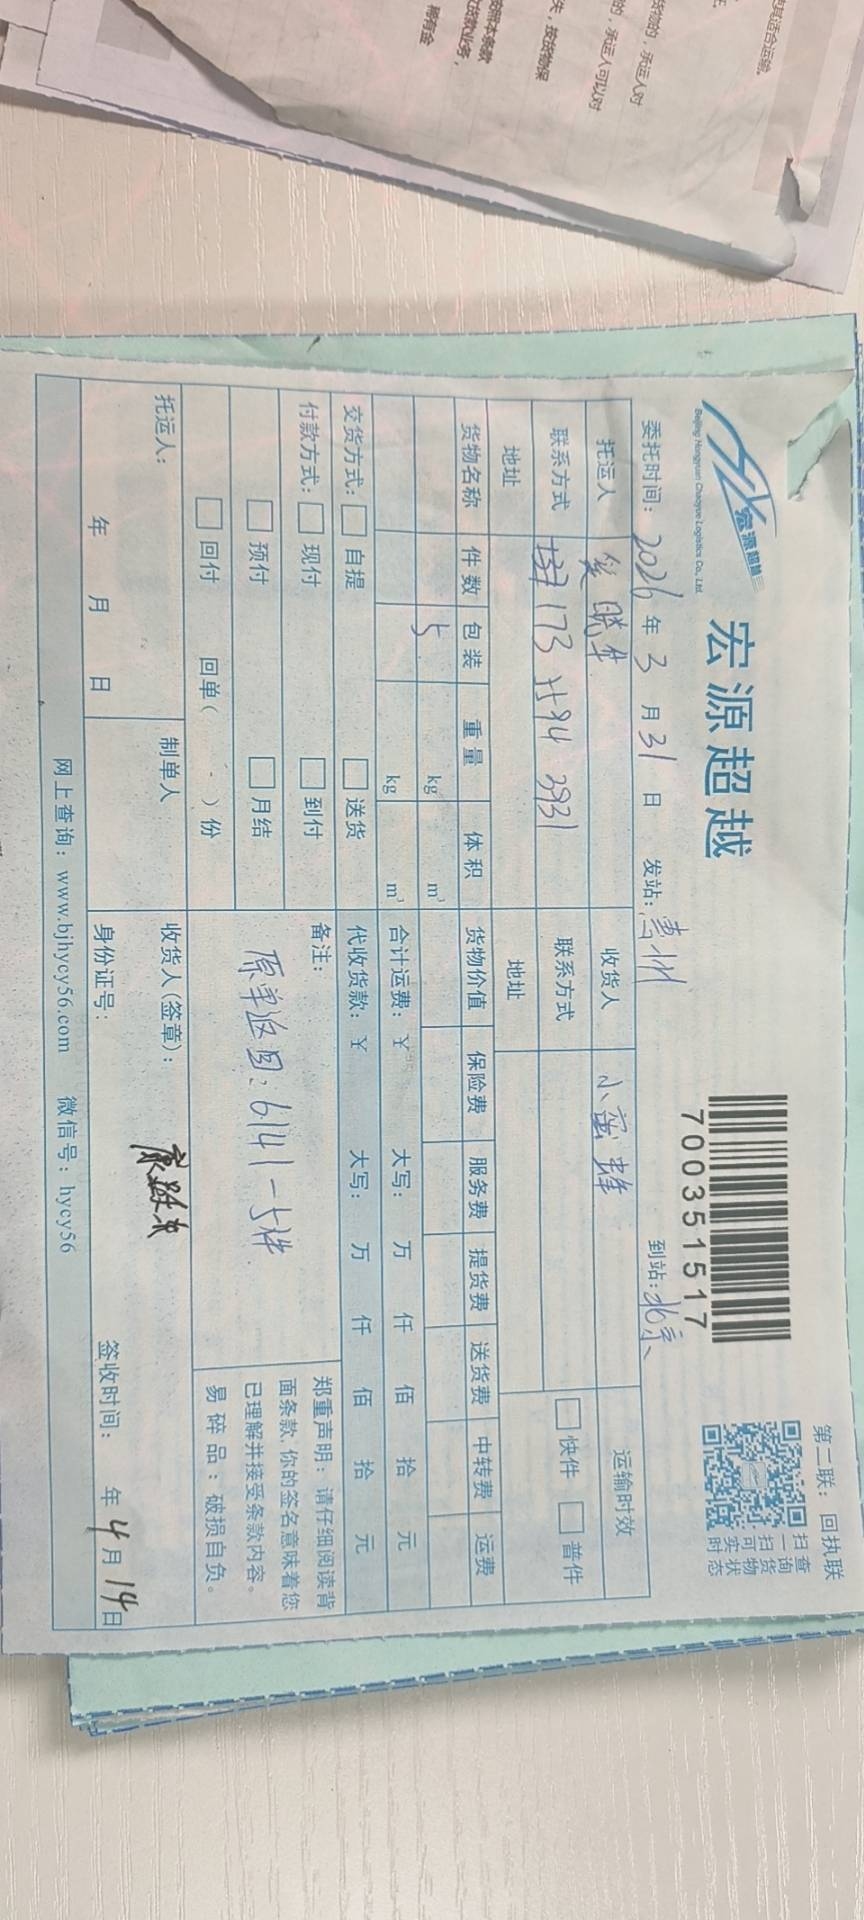 适合运输。
货物的，承运人对
的，承运人可以对
失，按货物保
第二联：回执联
宏源超越
Beijing Hongyuan Chaoyue Logistics Co., Ltd.
宏源超越
700351517
扫查
一询
扫货
可物
实状
时态
委托时间：2026年3月31日 发站：惠州 到站：北京
托运人 晓军 收货人 小蜜蜂 运输时效
联系方式 173 7594 3931 联系方式 快件 普件
地址 地址
货物名称 件数 包装 重量 体积 货物价值 保险费 服务费 提货费 送货费 中转费 运费
5 kg m³
kg m³ 合计运费：¥ 大写： 万 仟 佰 拾 元
交货方式： 自提 送货 代收货款：¥ 大写： 万 仟 佰 拾 元
付款方式： 现付 到付 备注：
预付 月结 原单返回：6141-5件
回付 回单（ ）份
郑重声明：请仔细阅读背
面条款，你的签名意味着您
已理解并接受条款内容。
易碎品：破损自负。
托运人： 制单人 收货人（签章）：
年 月 日 身份证号： 签收时间： 年4月14日
网上查询：www.bjhycy56.com 微信号：hycy56